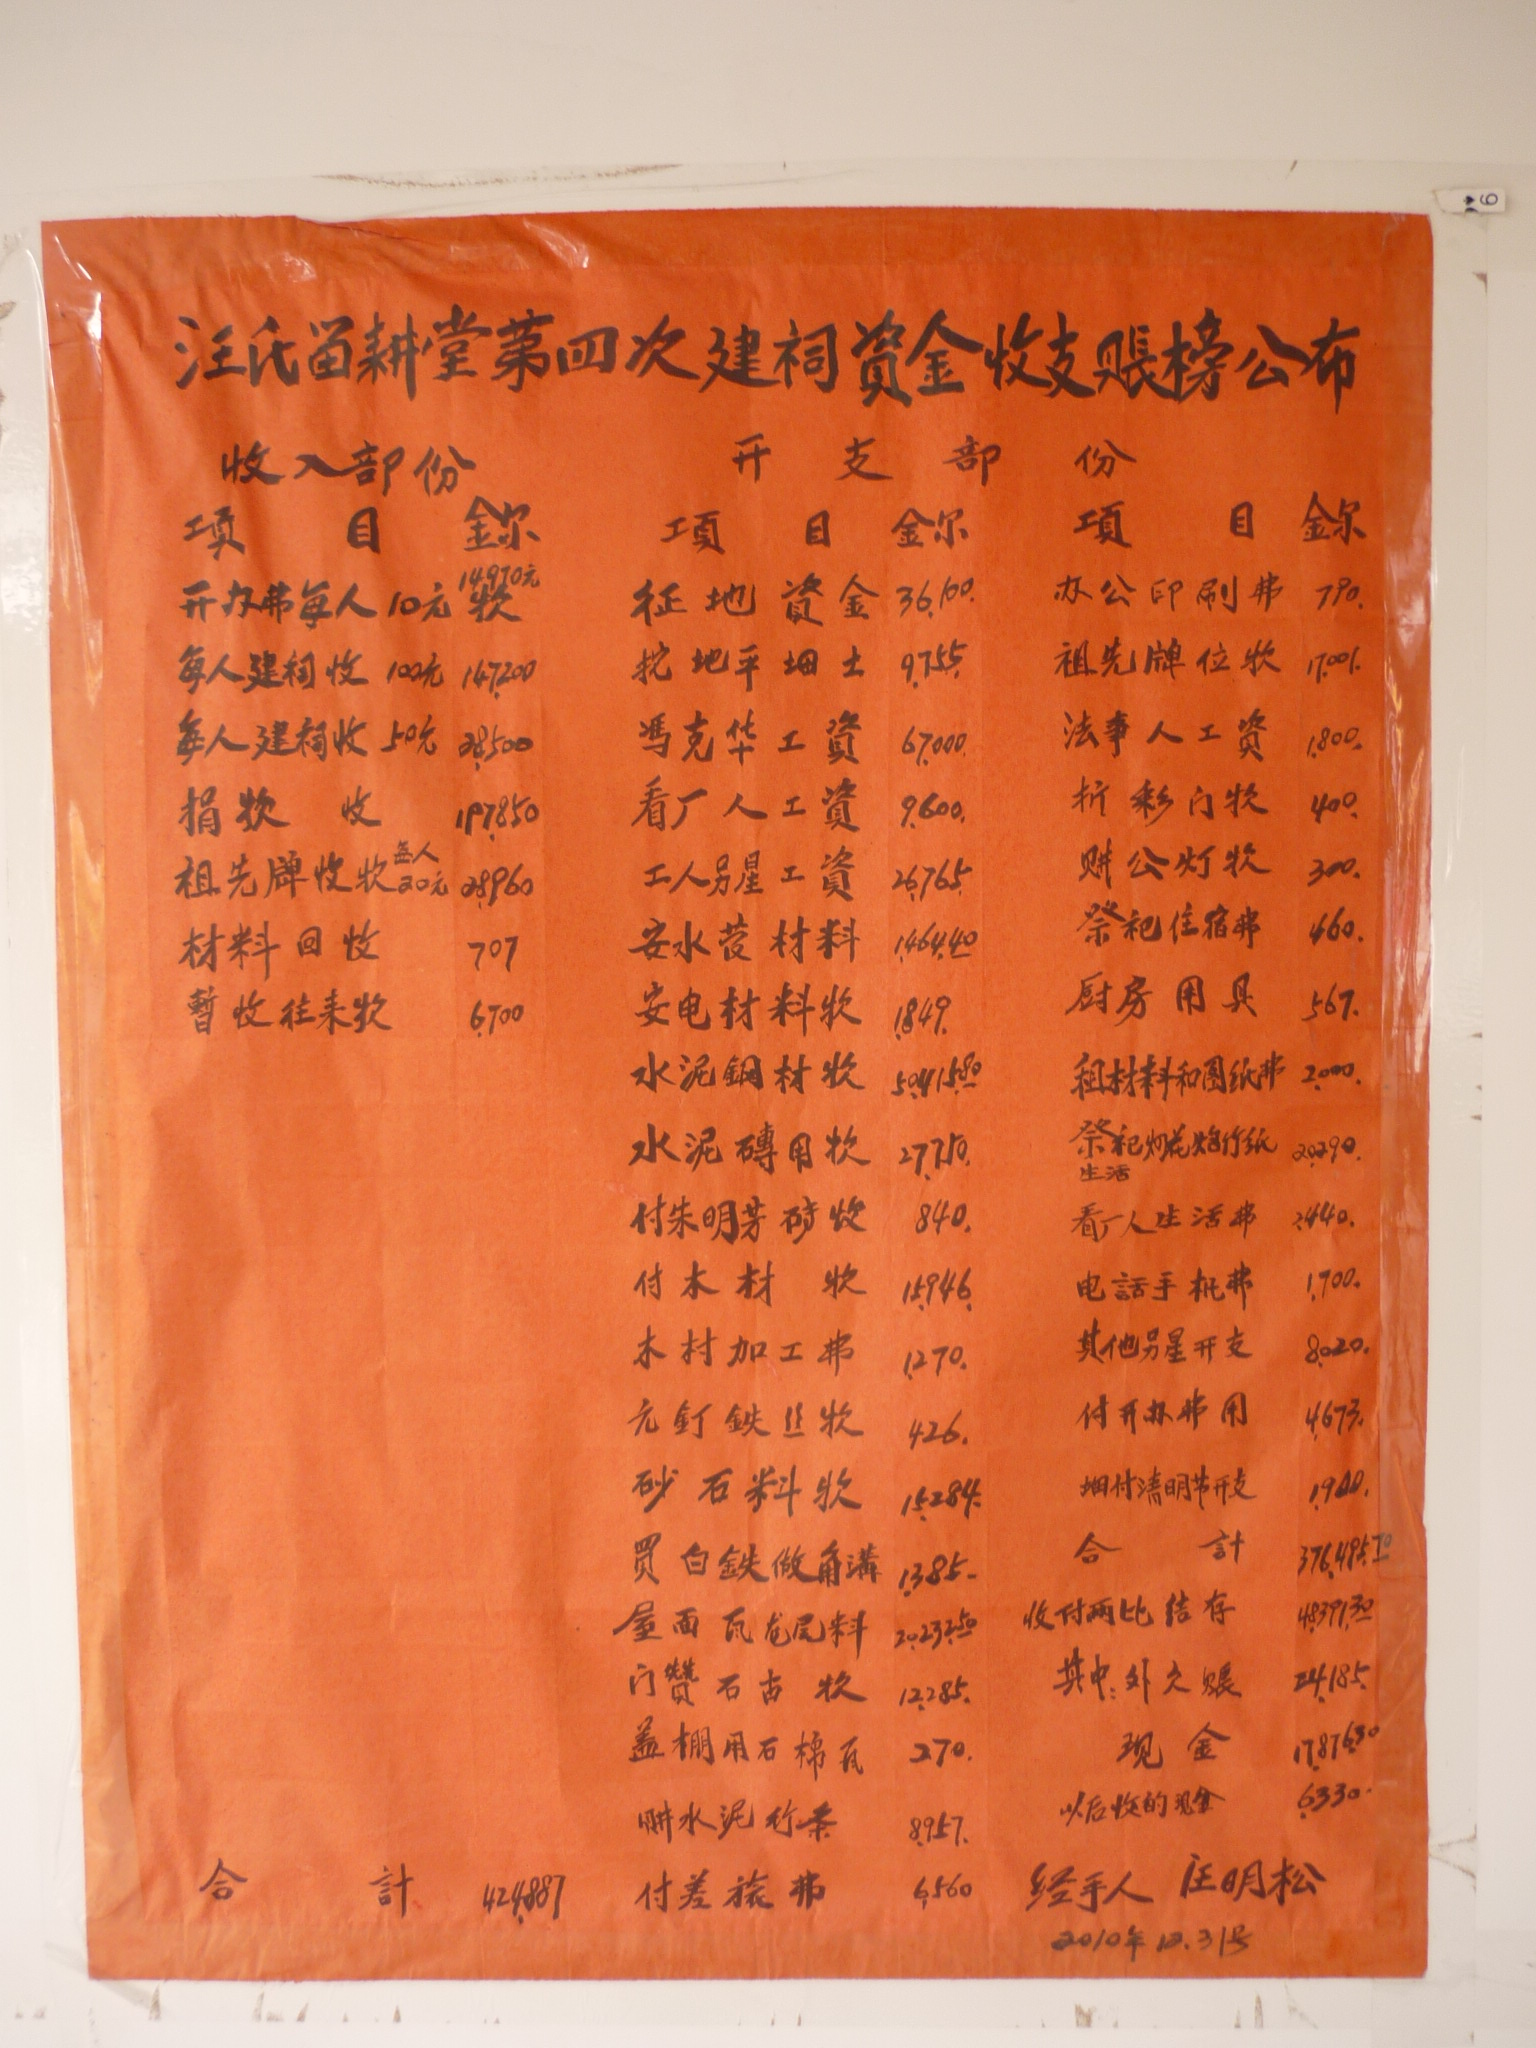 汪氏留耕堂第四次建祠資金收支賬榜公布
收入部份
項目 金尔
开办弗每人10元款 14970元
每人建祠收 100元 147,200
每人建祠收 50元 28,500
捐款收 197,850
祖先牌收款每人20元 28,960
材料回收 707
暫收往来款 6,700
合計 424,887
开支部份
項目 金尔
征地資金 36,100.
挖地平细土 9,755.
馮克华工資 67,000.
看厂人工資 9,600.
工人另星工資 26,765.
安水管材料 1,464.40
安电材料款 1,849.
水泥鋼材款 50,415.80
水泥磚用款 27,750.
付朱明芳砖收 840.
付木材款 15,946.
木材加工弗 1,270.
元釘鉄丝款 426.
砂石料款 15,284.
買白鉄做角溝 1,385.
屋面瓦龙尾料 20,232.50
门石古款 12,285.
盖棚用石棉瓦 270.
購水泥行条 8,957.
付差旅弗 6,560
項目 金尔
办公印刷弗 790.
祖先牌位款 17,001.
法事人工資 1,800.
折彩门款 400.
購公灯款 300.
祭祀住宿弗 460.
厨房用具 567.
租材料和图纸弗 2,000.
祭祀烟花炮竹纸 20,290.
生活
看厂人生活弗 2,440.
电話手机弗 1,700.
其他另星开支 8,020.
付开办弗用 4,673.
细付清明节开支
合計 376,485.70
收付兩比结存 48,391.30
其中:外欠賬 24,185.
现金 17,876.30
以后收的现金 6,330.
经手人 汪明松
2010年12.31号